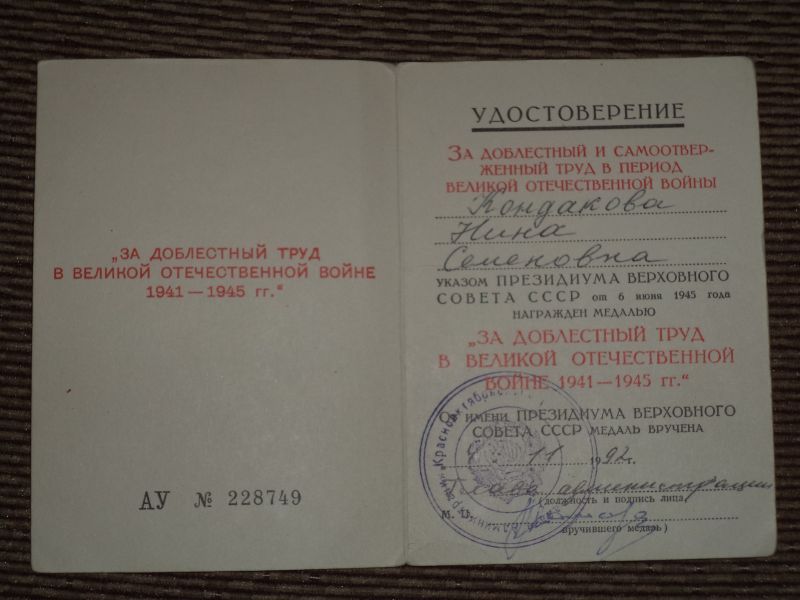 „ЗА ДОБЛЕСТНЫЙ ТРУД
В ВЕЛИКОЙ ОТЕЧЕСТВЕННОЙ ВОЙНЕ
1941 — 1945 гг.“
АУ № 228749
УДОСТОВЕРЕНИЕ
ЗА ДОБЛЕСТНЫЙ И САМООТВЕР-
ЖЕННЫЙ ТРУД В ПЕРИОД
ВЕЛИКОЙ ОТЕЧЕСТВЕННОЙ ВОЙНЫ
Кондакова
Нина
Семеновна
УКАЗОМ ПРЕЗИДИУМА ВЕРХОВНОГО
СОВЕТА СССР от 6 июня 1945 года
НАГРАЖДЕН МЕДАЛЬЮ
„ЗА ДОБЛЕСТНЫЙ ТРУД
В ВЕЛИКОЙ ОТЕЧЕСТВЕННОЙ
ВОЙНЕ 1941—1945 гг.“
От имени ПРЕЗИДИУМА ВЕРХОВНОГО
СОВЕТА СССР МЕДАЛЬ ВРУЧЕНА
11 1992 г.
Глава администрации
(должность и подпись лица,
М. П.
вручившего медаль)